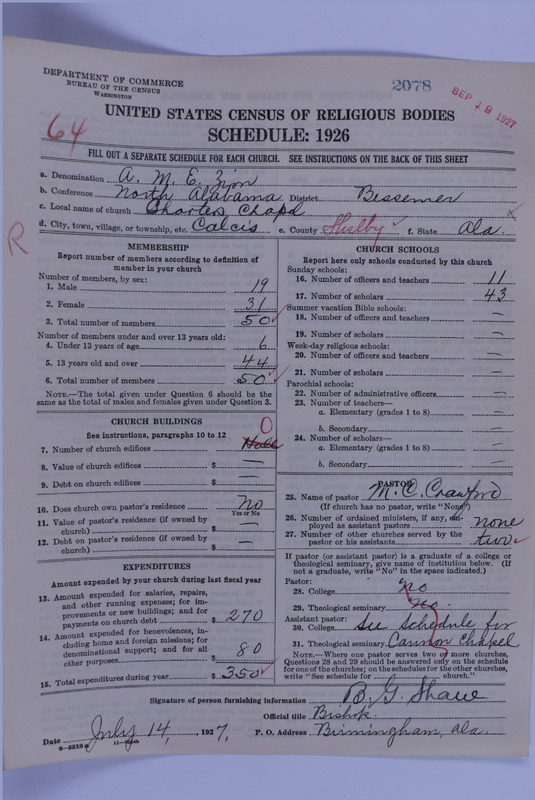 DEPARTMENT OF COMMERCE
BUREAU OF THE CENSUS
WASHINGTON
2078
SEP 19 1927
64
UNITED STATES CENSUS OF RELIGIOUS BODIES
SCHEDULE: 1926
FILL OUT A SEPARATE SCHEDULE FOR EACH CHURCH. SEE INSTRUCTIONS ON THE BACK OF THIS SHEET
a. Denomination A. M. E. Zion
b. Conference North Alabama District Bessemer
c. Local name of church Charters Chapel
d. City, town, village, or township, etc. Calcis e. County Shelby f. State Ala.
R
MEMBERSHIP
Report number of members according to definition of
member in your church
Number of members, by sex:
1. Male 19
2. Female 31
3. Total number of members 50
Number of members under and over 13 years old:
4. Under 13 years of age 6
5. 13 years old and over 44
6. Total number of members 50
NOTE.—The total given under Question 6 should be the
same as the total of males and females given under Question 3.
CHURCH BUILDINGS
See instructions, paragraphs 10 to 12
0
7. Number of church edifices Hall
8. Value of church edifices $ —
9. Debt on church edifices $ —
10. Does church own pastor's residence No
Yes or No
11. Value of pastor's residence (if owned by
church) $ —
12. Debt on pastor's residence (if owned by
church) $ —
EXPENDITURES
Amount expended by your church during last fiscal year
13. Amount expended for salaries, repairs,
and other running expenses; for im-
provements or new buildings; and for
payments on church debt $ 270
14. Amount expended for benevolences, in-
cluding home and foreign missions; for
denominational support; and for all
other purposes $ 80
15. Total expenditures during year $ 350
CHURCH SCHOOLS
Report here only schools conducted by this church
Sunday schools:
16. Number of officers and teachers 11
17. Number of scholars 43
Summer vacation Bible schools:
18. Number of officers and teachers —
19. Number of scholars —
Week-day religious schools:
20. Number of officers and teachers —
21. Number of scholars —
Parochial schools:
22. Number of administrative officers —
23. Number of teachers—
a. Elementary (grades 1 to 8) —
b. Secondary —
24. Number of scholars—
a. Elementary (grades 1 to 8) —
b. Secondary —
PASTOR
25. Name of pastor M. C. Crawford
(If church has no pastor, write "None")
26. Number of ordained ministers, if any, em-
ployed as assistant pastors none
27. Number of other churches served by the
pastor or his assistants two
If pastor (or assistant pastor) is a graduate of a college or
theological seminary, give name of institution below. (If
not a graduate, write "No" in the space indicated.)
Pastor:
28. College No
29. Theological seminary No.
Assistant pastor:
30. College See Schedule for
31. Theological seminary Cannon Chapel
NOTE.—Where one pastor serves two or more churches,
Questions 28 and 29 should be answered only on the schedule
for one of the churches; on the schedules for the other churches,
write "See schedule for church."
Signature of person furnishing information B. G. Shaw
Official title Bishop.
Date July 14, 1927. P. O. Address Birmingham, Ala.